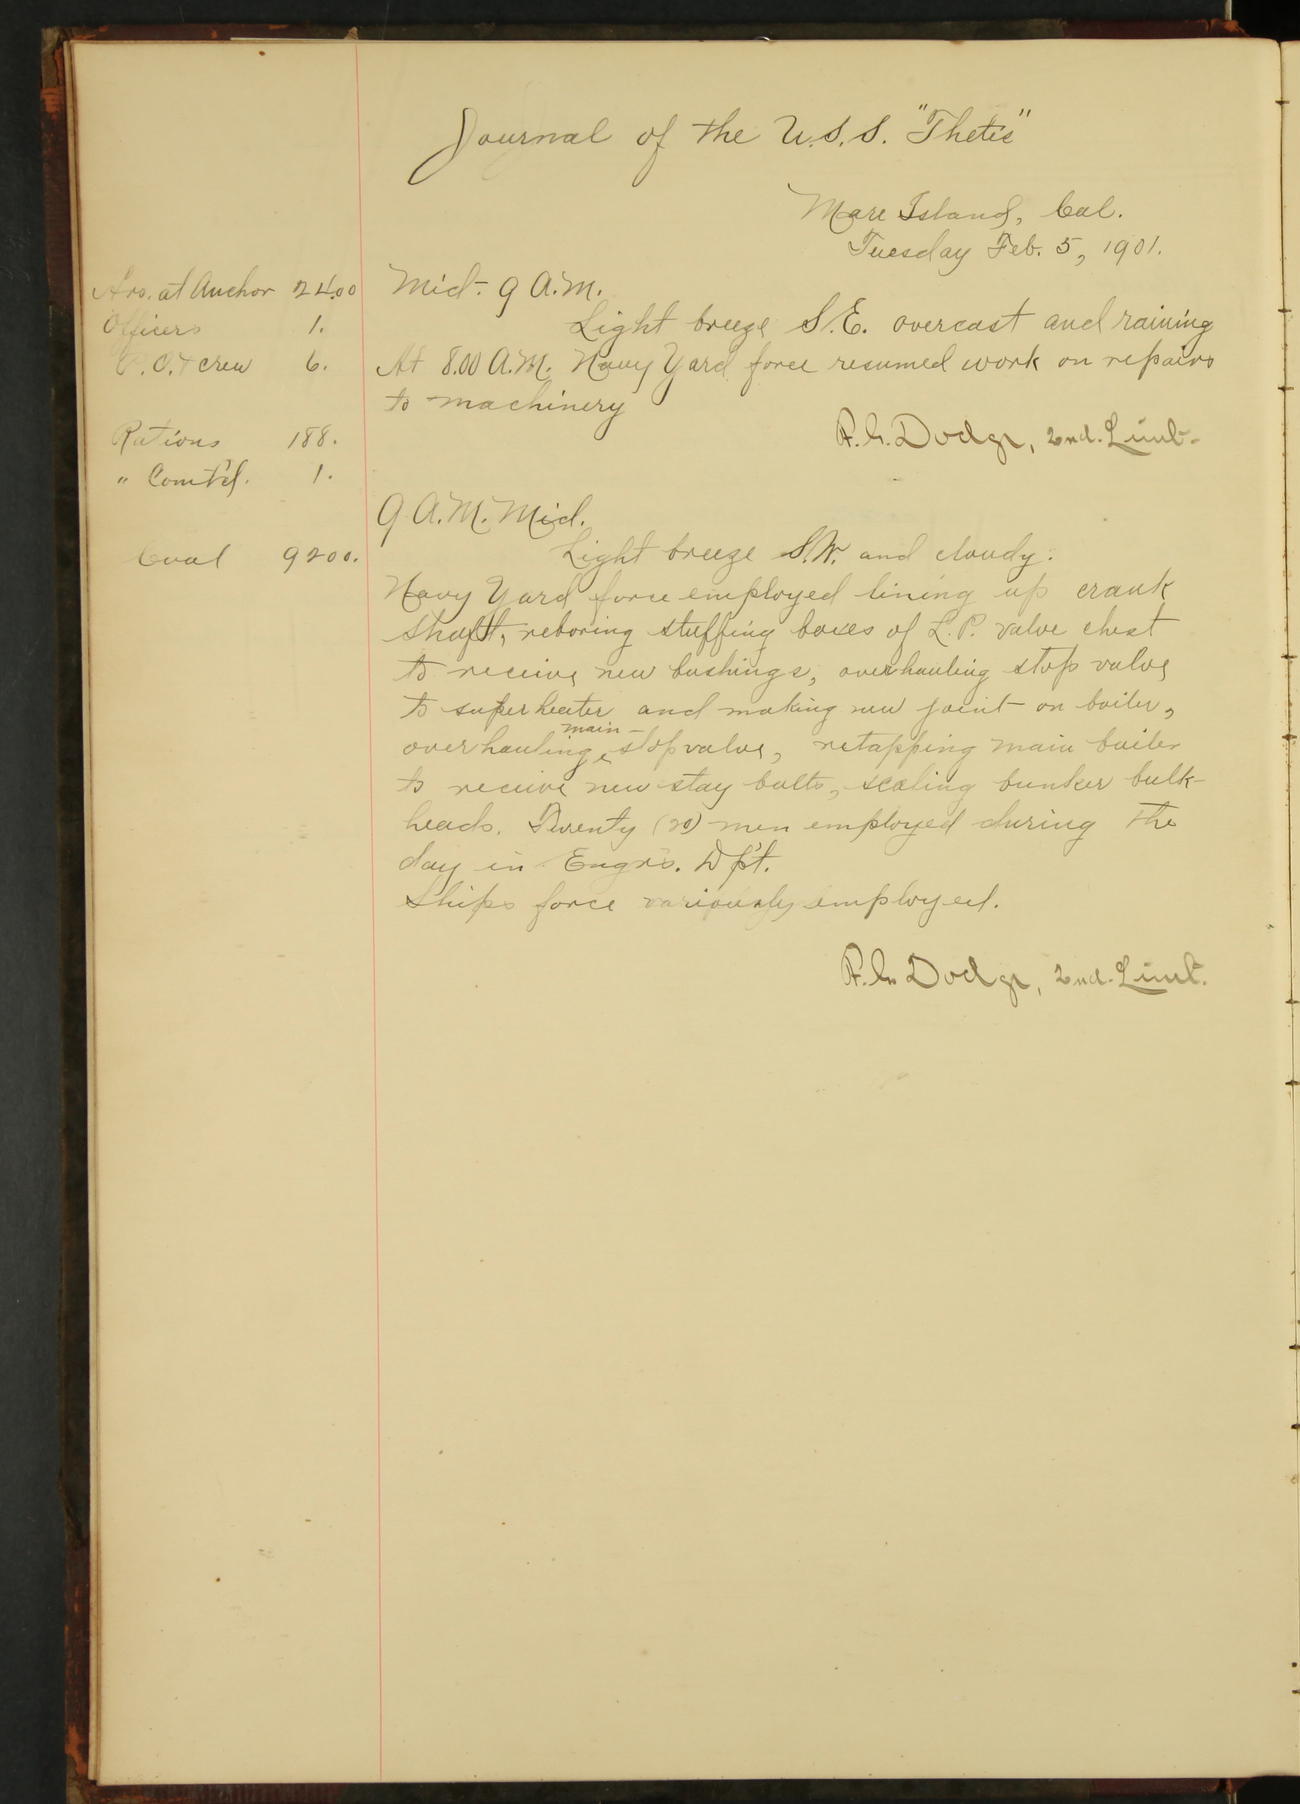 Journal of the U.S.S. "Thetis"
Mare Island, Cal.
Tuesday Feb. 5, 1901.
Hrs. at Anchor 24.00
Officers 1.
P.O. & crew 6.
Rations 188.
" Comt'd. 1.
Coal 9200.
Mid - 9 A.M.
Light breeze S.E. overcast and raining
At 8.00 A.M. Navy Yard force resumed work on repairs
to machinery
F.G. Dodge, 2nd. Lieut.
9 A.M. Mid.
Light breeze S.W. and cloudy.
Navy Yard force employed lining up crank
shaft, reboring stuffing boxes of L.P. valve chest
to receive new bushings, overhauling stop valve
to superheater and making new joint on boiler,
overhauling main stop valve, retapping main boiler
to receive new stay bolts, scaling bunker bulk-
heads. Twenty (20) men employed during the
day in Engr's. Dp't.
Ships force variously employed.
F.G. Dodge, 2nd. Lieut.